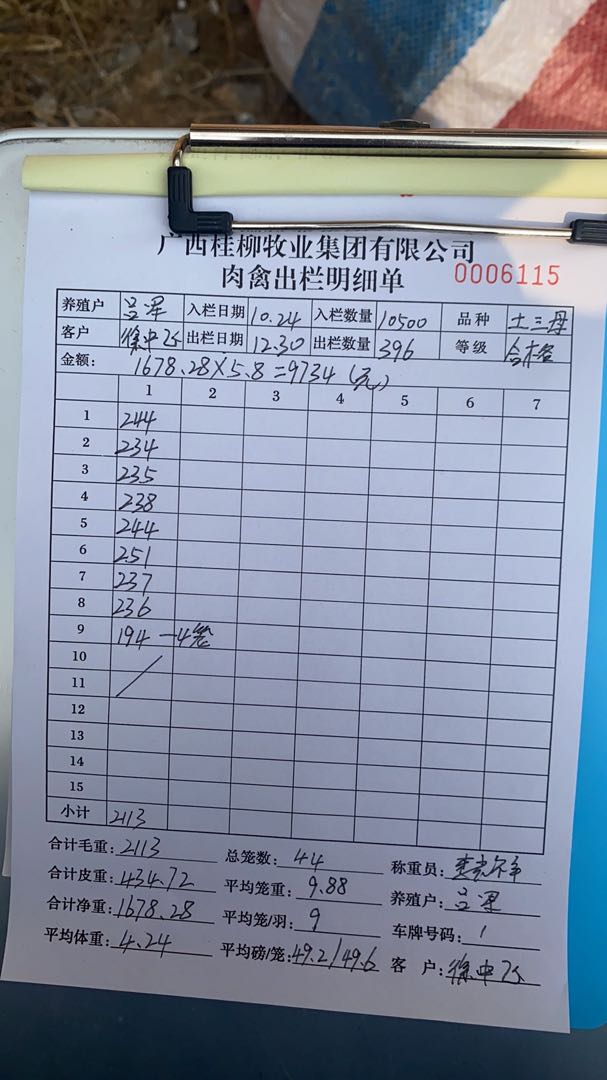 广西桂柳牧业集团有限公司
肉禽出栏明细单 0006115
养殖户 入栏日期 10.24 入栏数量 10500 品种 土三号
客户 徐中飞 出栏日期 12.30 出栏数量 396 等级 合格
金额: 1678.28×5.8=9734(元)
1 2 3 4 5 6 7
1 244
2 234
3 235
4 238
5 244
6 251
7 237
8 236
9 194 -4笼
10
11
12
13
14
15
小计 2113
合计毛重: 2113 总笼数: 44 称重员:
合计皮重: 434.72 平均笼重: 9.88 养殖户:
合计净重: 1678.28 平均笼/羽: 9 车牌号码: /
平均体重: 4.24 平均磅/笼: 49.2/49.6 客户: 徐中飞